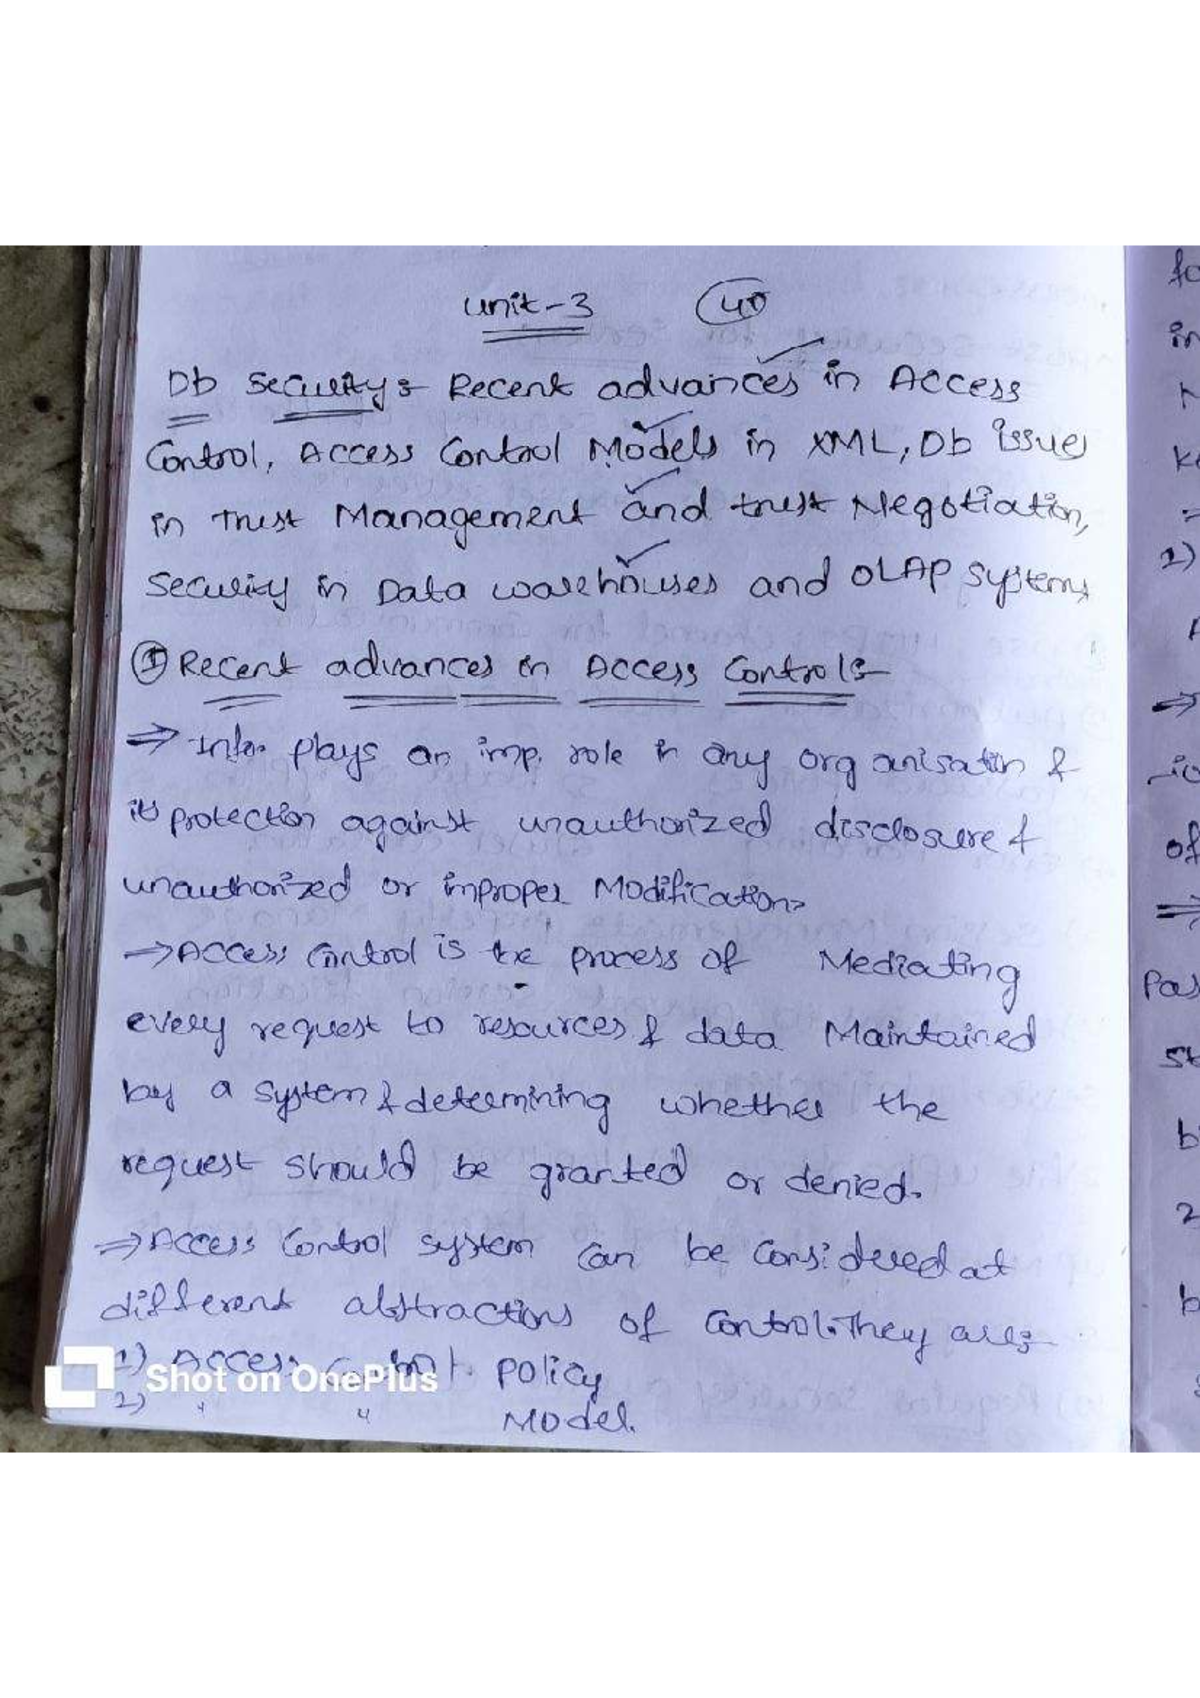 Unit-3 40
Db Security:- Recent advances in Access
Control, Access Control Models in XML, Db issues
in Trust Management and trust Negotiation,
Security in Data warehouses and OLAP systems
① Recent advances in Access Controls:-
⇒ Info. plays an imp. role in any organisation &
its protection against unauthorized disclosure &
unauthorized or improper Modification.
⇒ Access Control is the process of Mediating
every request to resources & data Maintained
by a system & determining whether the
request should be granted or denied.
⇒ Access Control system can be Considered at
different abstractions of Control. They are:-
1) Access Control policy
2) " " Model.
Shot on OnePlus
fo
in
1)
⇒
of
⇒
Pas
st
b
2
b